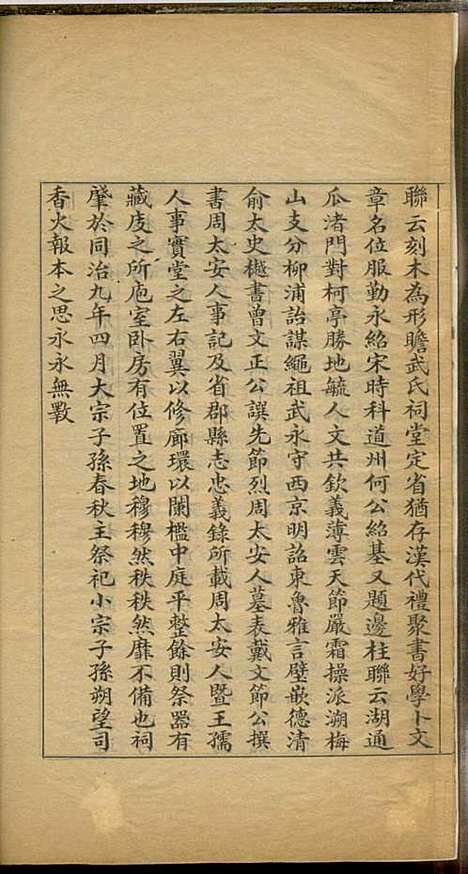 聯云刻木為形瞻武氏祠堂定省猶存漢代禮聚書好學卜文
章名位服勤永紹宋時科道州何公紹基又題邊柱聯云湖通
瓜渚門對柯亭勝地毓人文共欽義薄雲天節嚴霜操派溯梅
山支分柳浦詒謀繩祖武永守西京明詔東魯雅言壁嵌德清
俞太史樾書曾文正公譔先節烈周太安人墓表戴文節公撰
書周太安人事記及省郡縣志忠義錄所載周太安人暨王孺
人事實堂之左右翼以修廊環以闌檻中庭平整餘則祭器有
藏庋之所庖室卧房有位置之地穆穆然秩秩然靡不備也祠
肇於同治九年四月大宗子孫春秋主祭祀小宗子孫朔望司
香火報本之思永永無斁